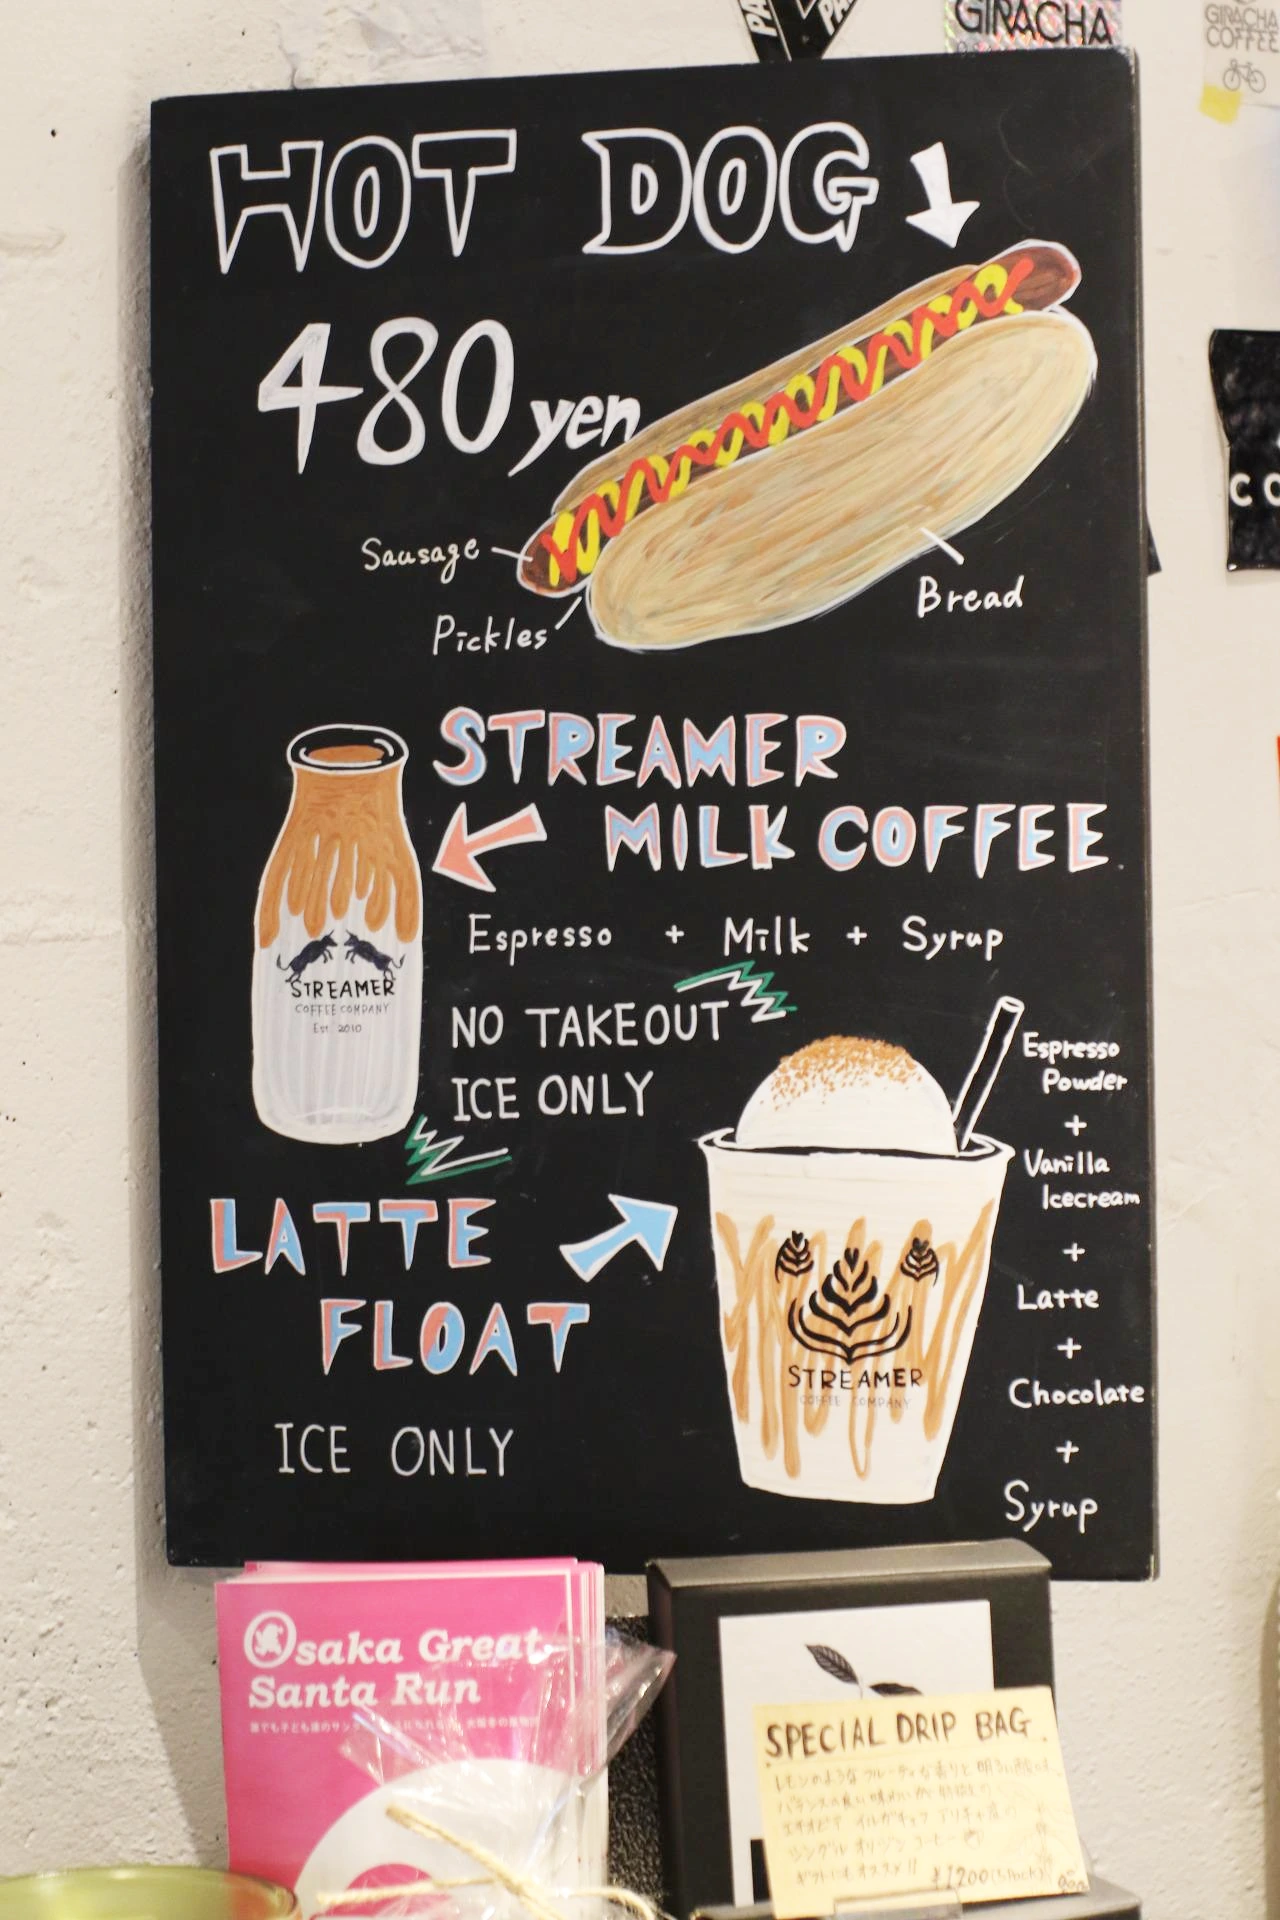 GIRACHA
GIRACHA
COFFEE
HOT DOG
480 yen
Sausage
Pickles
Bread
STREAMER
MILK COFFEE
Espresso + Milk + Syrup
STREAMER
COFFEE COMPANY
Est. 2010
NO TAKEOUT
ICE ONLY
LATTE
FLOAT
ICE ONLY
Espresso
Powder
+
Vanilla
Icecream
+
Latte
+
Chocolate
+
Syrup
STREAMER
COFFEE COMPANY
Osaka Great
Santa Run
SPECIAL DRIP BAG
レモンのようなフルーティな香りと明るい酸味
バランスの良い味わいが特徴の
エチオピア イルガチェフェ
シングルオリジンコーヒー
ギフトにもオススメ!!
¥1200